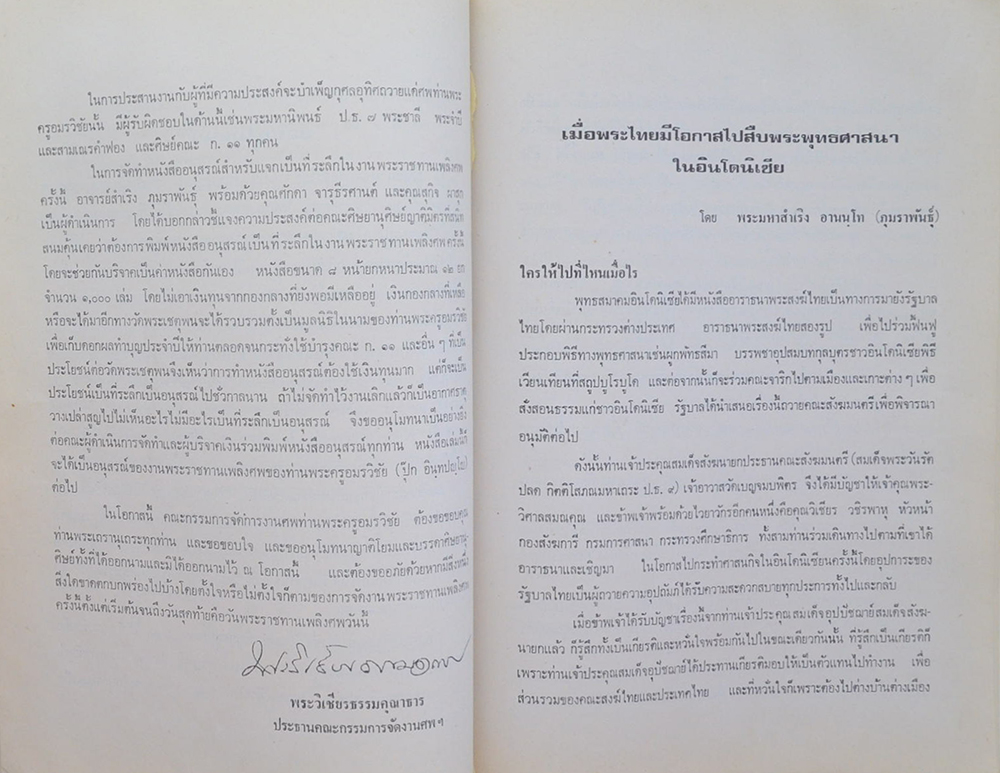 ในการประสานงานกับผู้ที่มีความประสงค์จะบำเพ็ญกุศลอุทิศถวายแด่ศพท่านพระ
ครูอมรวิชัยนั้น มีผู้รับผิดชอบในด้านนี้เช่นพระมหานิพนธ์ ป.ธ. ๗ พระชาลี พระจำปี
และสามเณรคำฟอง และศิษย์คณะ ก. ๑๑ ทุกคน
ในการจัดทำหนังสืออนุสรณ์สำหรับแจกเป็นที่ระลึกในงานพระราชทานเพลิงศพ
ครั้งนี้ อาจารย์สำเริง ภุมราพันธุ์ พร้อมด้วยคุณศักดา จารุธีรศานต์ และคุณสุกิจ ผาสุก
เป็นผู้ดำเนินการ โดยได้บอกกล่าวชี้แจงความประสงค์ต่อคณะศิษยานุศิษย์ญาติมิตรที่สนิท
สนมคุ้นเคยว่าต้องการพิมพ์หนังสืออนุสรณ์เป็นที่ระลึกในงานพระราชทานเพลิงศพ ครั้งนี้
โดยจะช่วยกันบริจาคเป็นค่าหนังสือกันเอง หนังสือขนาด ๘ หน้ายกหนาประมาณ ๑๒ ยก
จำนวน ๑,๐๐๐ เล่ม โดยไม่เอาเงินทุนจากกองกลางที่ยังพอมีเหลืออยู่ เงินกองกลางที่เหลือ
หรือจะได้มาอีกทางวัดพระเชตุพนจะได้รวบรวมตั้งเป็นมูลนิธิในนามของท่านพระครูอมรวิชัย
เพื่อเก็บดอกผลทำบุญประจำปีให้ท่านตลอดจนกระทั่งใช้บำรุงคณะ ก. ๑๑ และอื่น ๆ ที่เป็น
ประโยชน์ต่อวัดพระเชตุพนจึงเห็นว่าการทำหนังสืออนุสรณ์ต้องใช้เงินทุนมาก แต่ก็จะเป็น
ประโยชน์เป็นที่ระลึกเป็นอนุสรณ์ไปชั่วกาลนาน ถ้าไม่จัดทำไว้งานเลิกแล้วก็เป็นอากาศธาตุ
วางเปล่าสูญไปไม่เห็นอะไรไม่มีอะไรเป็นที่ระลึกเป็นอนุสรณ์ จึงขออนุโมทนาเป็นอย่างยิ่ง
ต่อคณะผู้ดำเนินการจัดทำและผู้บริจาคเงินร่วมพิมพ์หนังสืออนุสรณ์ทุกท่าน หนังสือเล่มนี้
จะได้เป็นอนุสรณ์ของงานพระราชทานเพลิงศพของท่านพระครูอมรวิชัย (ปุ๊ก อินฺทปญฺโญ)
ต่อไป
ในโอกาสนี้ คณะกรรมการจัดการงานศพท่านพระครูอมรวิชัย ต้องขอขอบคุณ
ท่านพระเถรานุเถระทุกท่าน และขอขอบใจ และขออนุโมทนาญาติโยมและบรรดาศิษยานุ-
ศิษย์ทั้งที่ได้ออกนามและมิได้ออกนามไว้ ณ โอกาสนี้ และต้องขออภัยด้วยหากมีสิ่งหนึ่ง
สิ่งใดขาดตกบกพร่องไปบ้างโดยตั้งใจหรือไม่ตั้งใจก็ตามของการจัดงานพระราชทานเพลิงศพ
ครั้งนี้ตั้งแต่เริ่มต้นจนถึงวันสุดท้ายคือวันพระราชทานเพลิงศพวันนี้
พระวิเชียรธรรมคุณาธาร
ประธานคณะกรรมการจัดงานศพฯ
เมื่อพระไทยมีโอกาสไปสืบพระพุทธศาสนา
ในอินโดนิเซีย
โดย พระมหาสำเริง อานนฺโท (ภุมราพันธุ์)
ใครให้ไปที่ไหนเมื่อไร
พุทธสมาคมอินโดนิเซียได้มีหนังสืออาราธนาพระสงฆ์ไทยเป็นทางการมายังรัฐบาล
ไทยโดยผ่านกระทรวงต่างประเทศ อาราธนาพระสงฆ์ไทยสองรูป เพื่อไปร่วมฟื้นฟู
ประกอบพิธีทางพุทธศาสนาเช่นผูกพัทธสีมา บรรพชาอุปสมบทกุลบุตรชาวอินโดนิเซียพิธี
เวียนเทียนที่สถูปบุโรบูโด และต่อจากนั้นก็จะร่วมคณะจาริกไปตามเมืองและเกาะต่าง ๆ เพื่อ
สั่งสอนธรรมแก่ชาวอินโดนิเซีย รัฐบาลได้นำเสนอเรื่องนี้ถวายคณะสังฆมนตรีเพื่อพิจารณา
อนุมัติต่อไป
ดังนั้นท่านเจ้าประคุณสมเด็จสังฆนายกประธานคณะสังฆมนตรี (สมเด็จพระวันรัต
ปลด กิตติโสภณมหาเถระ ป.ธ. ๙) เจ้าอาวาสวัดเบญจมบพิตร จึงได้มีบัญชาให้เจ้าคุณพระ-
วิศาลสมณคุณ และข้าพเจ้าพร้อมด้วยไวยาวักรอีกคนหนึ่งคือคุณวิเชียร วชิรพาหุ หัวหน้า
กองสังฆการี กรมการศาสนา กระทรวงศึกษาธิการ ทั้งสามท่านร่วมเดินทางไปตามที่เขาได้
อาราธนาและเชิญมา ในโอกาสไปกระทำศาสนกิจในอินโดนิเซียนครั้งนี้โดยอุปการะของ
รัฐบาลไทยเป็นผู้ถวายความอุปถัมภ์ได้รับความสะดวกสบายทุกประการทั้งไปและกลับ
เมื่อข้าพเจ้าได้รับบัญชาเรื่องนี้จากท่านเจ้าประคุณสมเด็จอุปัชฌาย์สมเด็จสังฆ-
นายกแล้ว ก็รู้สึกทั้งเป็นเกียรติและหวั่นใจพร้อมกันไปในขณะเดียวกันนั้น ที่รู้สึกเป็นเกียรติก็
เพราะท่านเจ้าประคุณสมเด็จอุปัชฌาย์ได้ประทานเกียรติมอบให้เป็นตัวแทนไปทำงาน เพื่อ
ส่วนรวมของคณะสงฆ์ไทยและประเทศไทย และที่หวั่นใจก็เพราะต้องไปต่างบ้านต่างเมือง